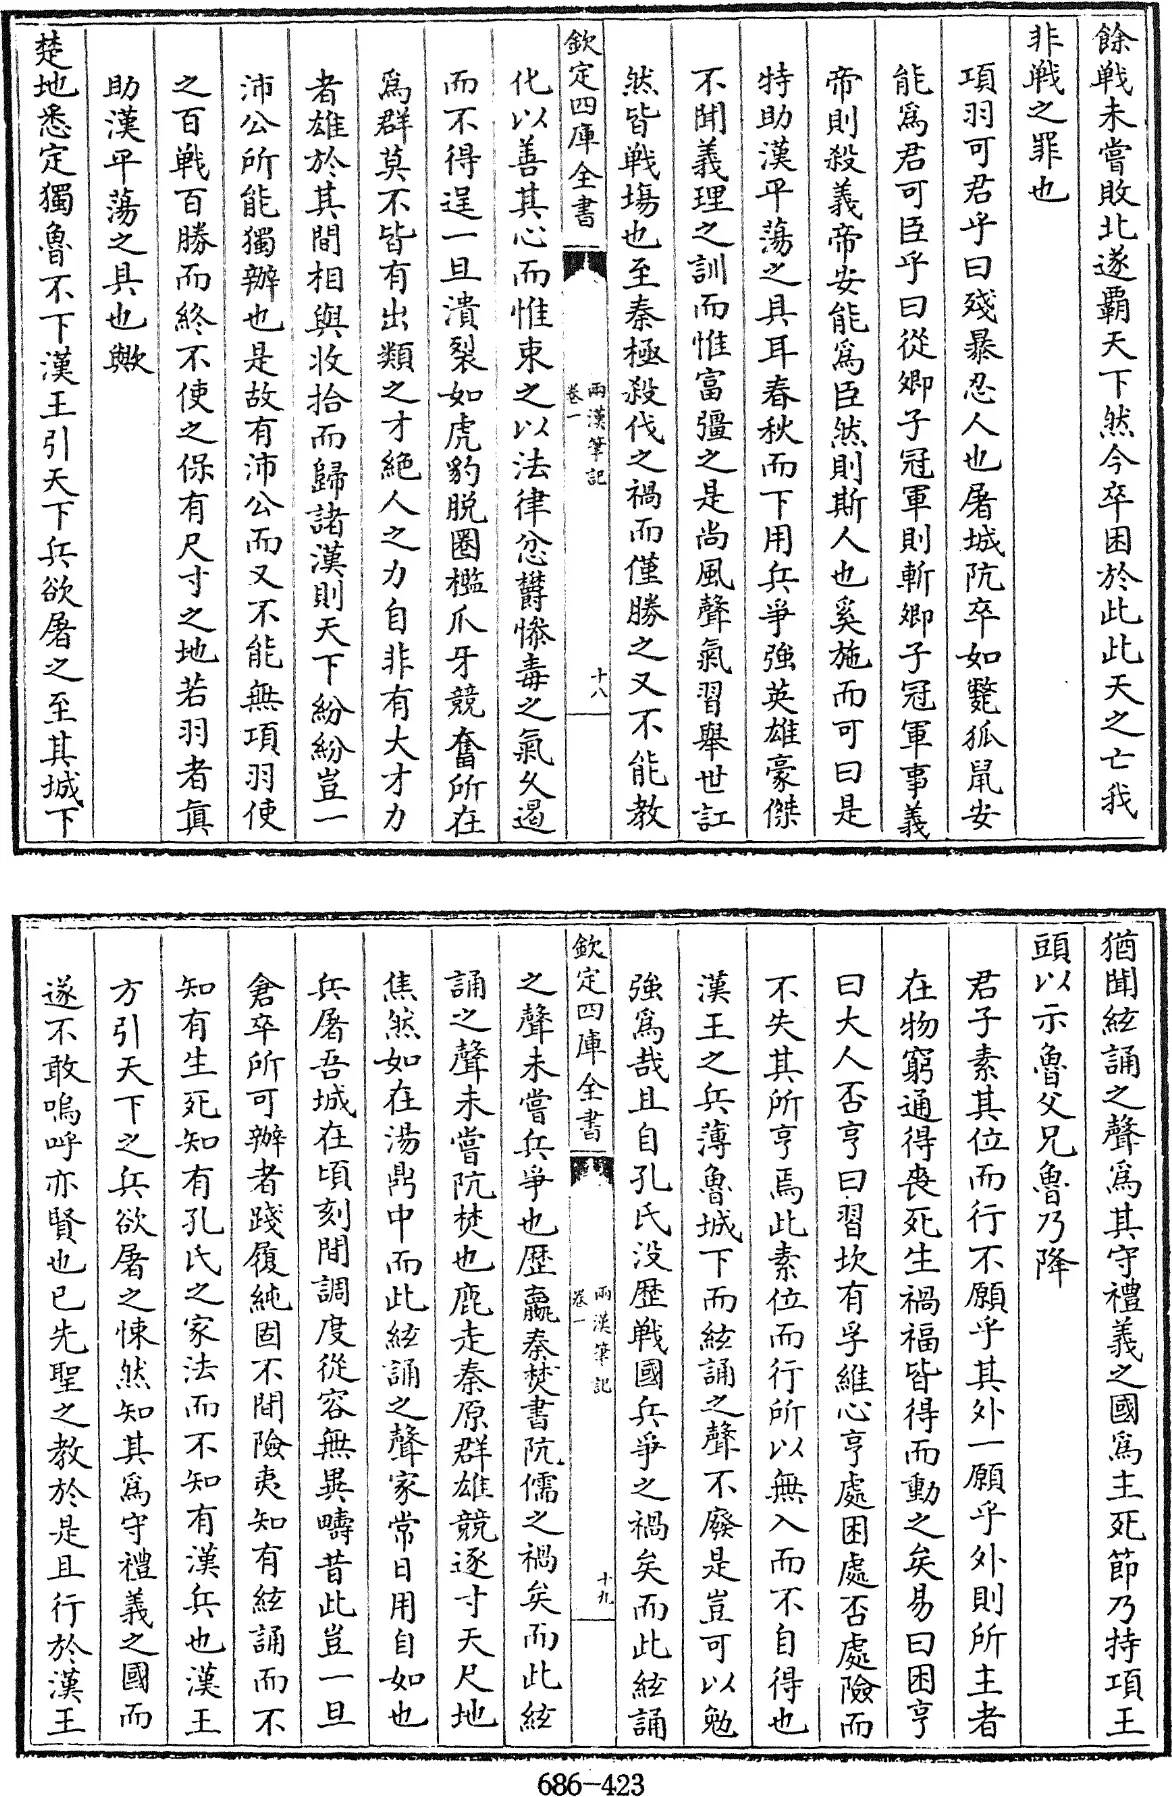 餘戦未嘗敗北遂霸天下然今卒困於此此天之亡我
非戦之罪也
項羽可君乎曰殘暴忍人也屠城阬卒如斃狐鼠安
能爲君可臣乎曰從卿子冠軍則斬卿子冠軍事義
帝則殺義帝安能爲臣然則斯人也奚施而可曰是
特助漢平蕩之具耳春秋而下用兵爭強英雄豪傑
不聞義理之訓而惟富彊之是尚風聲氣習舉世訌
然皆戦場也至秦極殺伐之禍而僅勝之又不能教
欽定四庫全書
兩漢筆記
卷一
十八
化以善其心而惟束之以法律忿欝慘毒之氣久遏
而不得逞一旦潰裂如虎豹脱圈檻爪牙競奮所在
爲群莫不皆有出類之才絶人之力自非有大才力
者雄於其間相與收拾而歸諸漢則天下紛紛豈一
沛公所能獨辦也是故有沛公而又不能無項羽使
之百戦百勝而終不使之保有尺寸之地若羽者真
助漢平蕩之具也歟
楚地悉定獨魯不下漢王引天下兵欲屠之至其城下
猶聞絃誦之聲爲其守禮義之國爲主死節乃持項王
頭以示魯父兄魯乃降
君子素其位而行不願乎其外一願乎外則所主者
在物窮通得喪死生禍福皆得而動之矣易曰困亨
曰大人否亨曰習坎有孚維心亨處困處否處險而
不失其所亨焉此素位而行所以無入而不自得也
漢王之兵薄魯城下而絃誦之聲不廢是豈可以勉
強爲哉且自孔氏没歴戦國兵爭之禍矣而此絃誦
欽定四庫全書
兩漢筆記
卷一
十九
之聲未嘗兵爭也歴嬴秦焚書阬儒之禍矣而此絃
誦之聲未嘗阬焚也鹿走秦原群雄競逐寸天尺地
焦然如在湯鼎中而此絃誦之聲家常日用自如也
兵屠吾城在頃刻間調度從容無異疇昔此豈一旦
倉卒所可辦者踐履純固不間險夷知有絃誦而不
知有生死知有孔氏之家法而不知有漢兵也漢王
方引天下之兵欲屠之悚然知其爲守禮義之國而
遂不敢嗚呼亦賢也已先聖之教於是且行於漢王
686-423